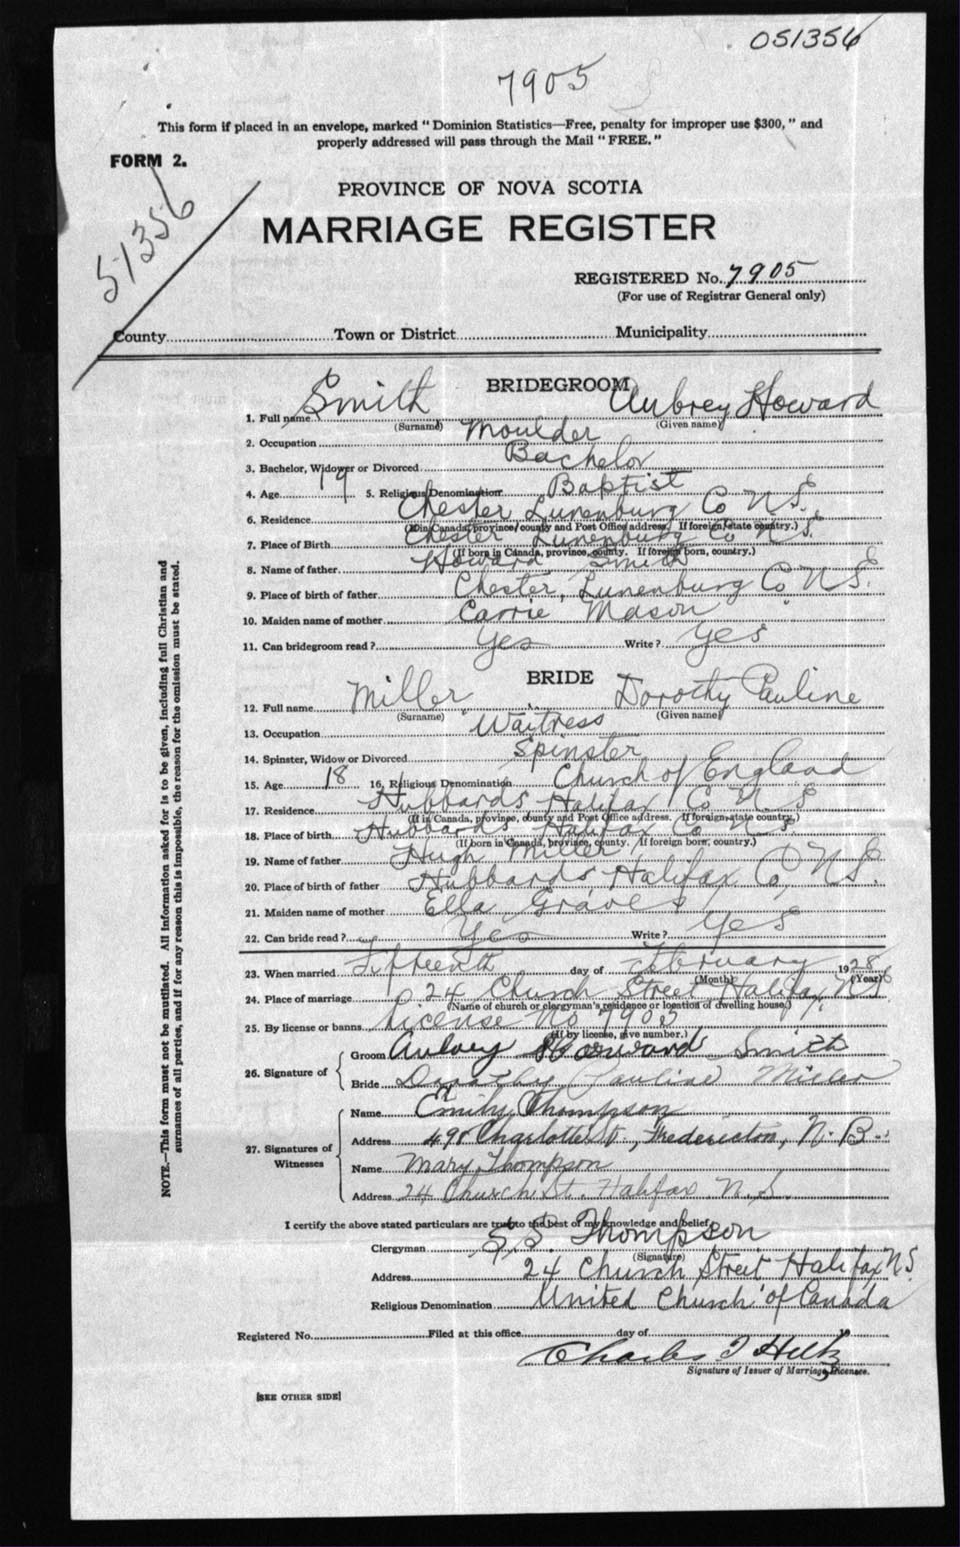 051356
7905
This form if placed in an envelope, marked " Dominion Statistics—Free, penalty for improper use $300, " and
properly addressed will pass through the Mail " FREE. "
FORM 2.
51356
PROVINCE OF NOVA SCOTIA
MARRIAGE REGISTER
REGISTERED No. 7905
(For use of Registrar General only)
County Town or District Municipality
BRIDEGROOM
1. Full name Smith Aubrey Howard
(Surname) (Given name)
2. Occupation Moulder
3. Bachelor, Widower or Divorced Bachelor
4. Age 19 5. Religious Denomination Baptist
6. Residence Chester Lunenburg Co N.S.
(If in Canada, province, county and Post Office address. If foreign, state country.)
7. Place of Birth Chester Lunenburg Co N.S.
(If born in Canada, province, county. If foreign born, country.)
8. Name of father Howard Smith
9. Place of birth of father Chester, Lunenburg Co N.S.
10. Maiden name of mother Carrie Mason
11. Can bridegroom read ? Yes Write ? Yes
BRIDE
12. Full name Miller Dorothy Pauline
(Surname) (Given name)
13. Occupation Waitress
14. Spinster, Widow or Divorced Spinster
15. Age 18 16. Religious Denomination Church of England
17. Residence Hubbards Halifax Co N.S
(If in Canada, province, county and Post Office address. If foreign state country.)
18. Place of birth Hubbards Halifax Co N.S
(If born in Canada, province, county. If foreign born, country.)
19. Name of father Hugh Miller
20. Place of birth of father Hubbards, Halifax Co, N.S.
21. Maiden name of mother Ella Graves
22. Can bride read ? Yes Write ? Yes
23. When married Fifteenth day of February 1928
(Month) (Year)
24. Place of marriage 24 Church Street Halifax N.S
(Name of church or clergyman's residence or location of dwelling house.)
25. By license or banns License No 7905
(If by license, give number.)
26. Signature of
Groom Aubrey Howard Smith
Bride Dorothy Pauline Miller
27. Signatures of Witnesses
Name Emily Thompson
Address Charlotte St., Fredericton, N. B.
Name Mary Thompson
Address 24 Church St. Halifax N.S.
I certify the above stated particulars are true to the best of my knowledge and belief.
Clergyman Thompson
(Signature)
Address 24 Church Street Halifax N.S.
Religious Denomination United Church of Canada
Registered No. Filed at this office day of 19
Charles
Signature of Issuer of Marriage Licenses.
[SEE OTHER SIDE]
NOTE.—This form must not be mutilated. All information asked for is to be given, including full Christian and
surnames of all parties, and if for any reason this is impossible, the reason for the omission must be stated.